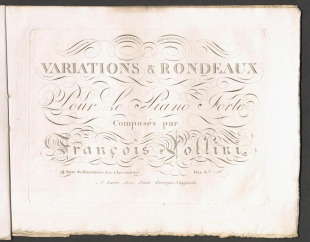 VARIATIONS & RONDEAUX
Pour le Piano Forte
Composés par
François Pollini.